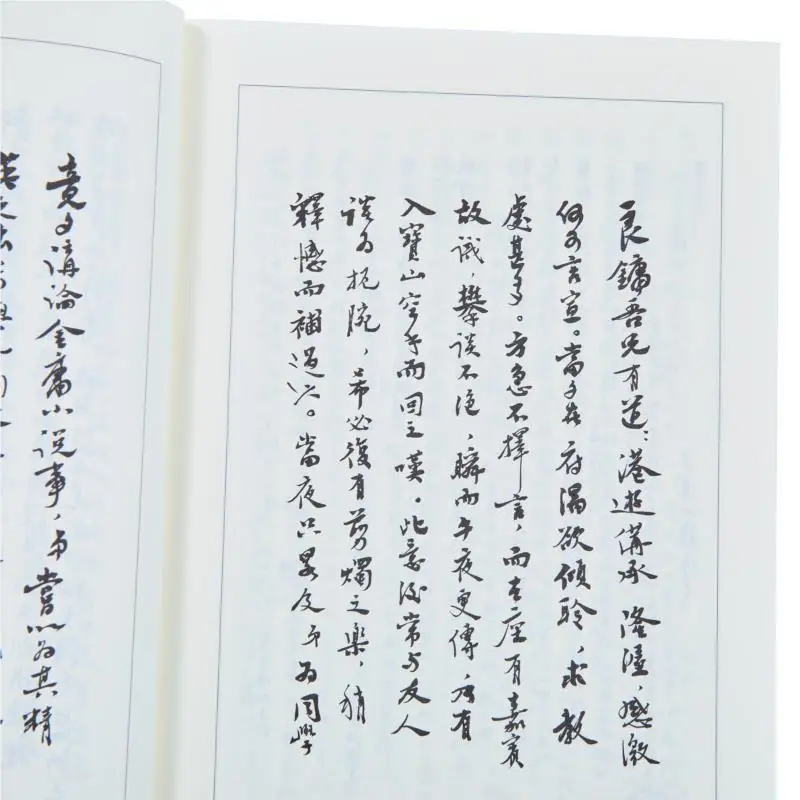 良鏞吾兄有道:港遊備承隆渥,感激
何可言宣。當夕在府渴欲傾聆,求教
處甚多。方急不擇言,而在座有嘉賓
故識,攀談不絕,瞬而午夜更傳,乃有
入寶山空手而回之嘆。此意後常与友人
談為扼腕,希必復有剪燭之樂,稍
釋憾而補過也。當夜只畧及弟為同學
竟夕講論金庸小說事,弟嘗以為其精